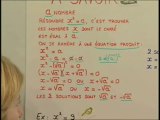 À SAVOIR
a NOMBRE
RÉSOUDRE x² = a, C'EST TROUVER
LES NOMBRES x DONT LE CARRÉ
EST ÉGAL À a
ON SE RAMÈNE À UNE ÉQUATION PRODUIT
x² = a
x² - a = 0
x² - (√a)² = 0
(x - √a)(x + √a) = 0
x - √a = 0 ou x + √a = 0
x = √a ou x = -√a
LES 2 SOLUTIONS SONT √a ET -√a
Ex: x² = 3